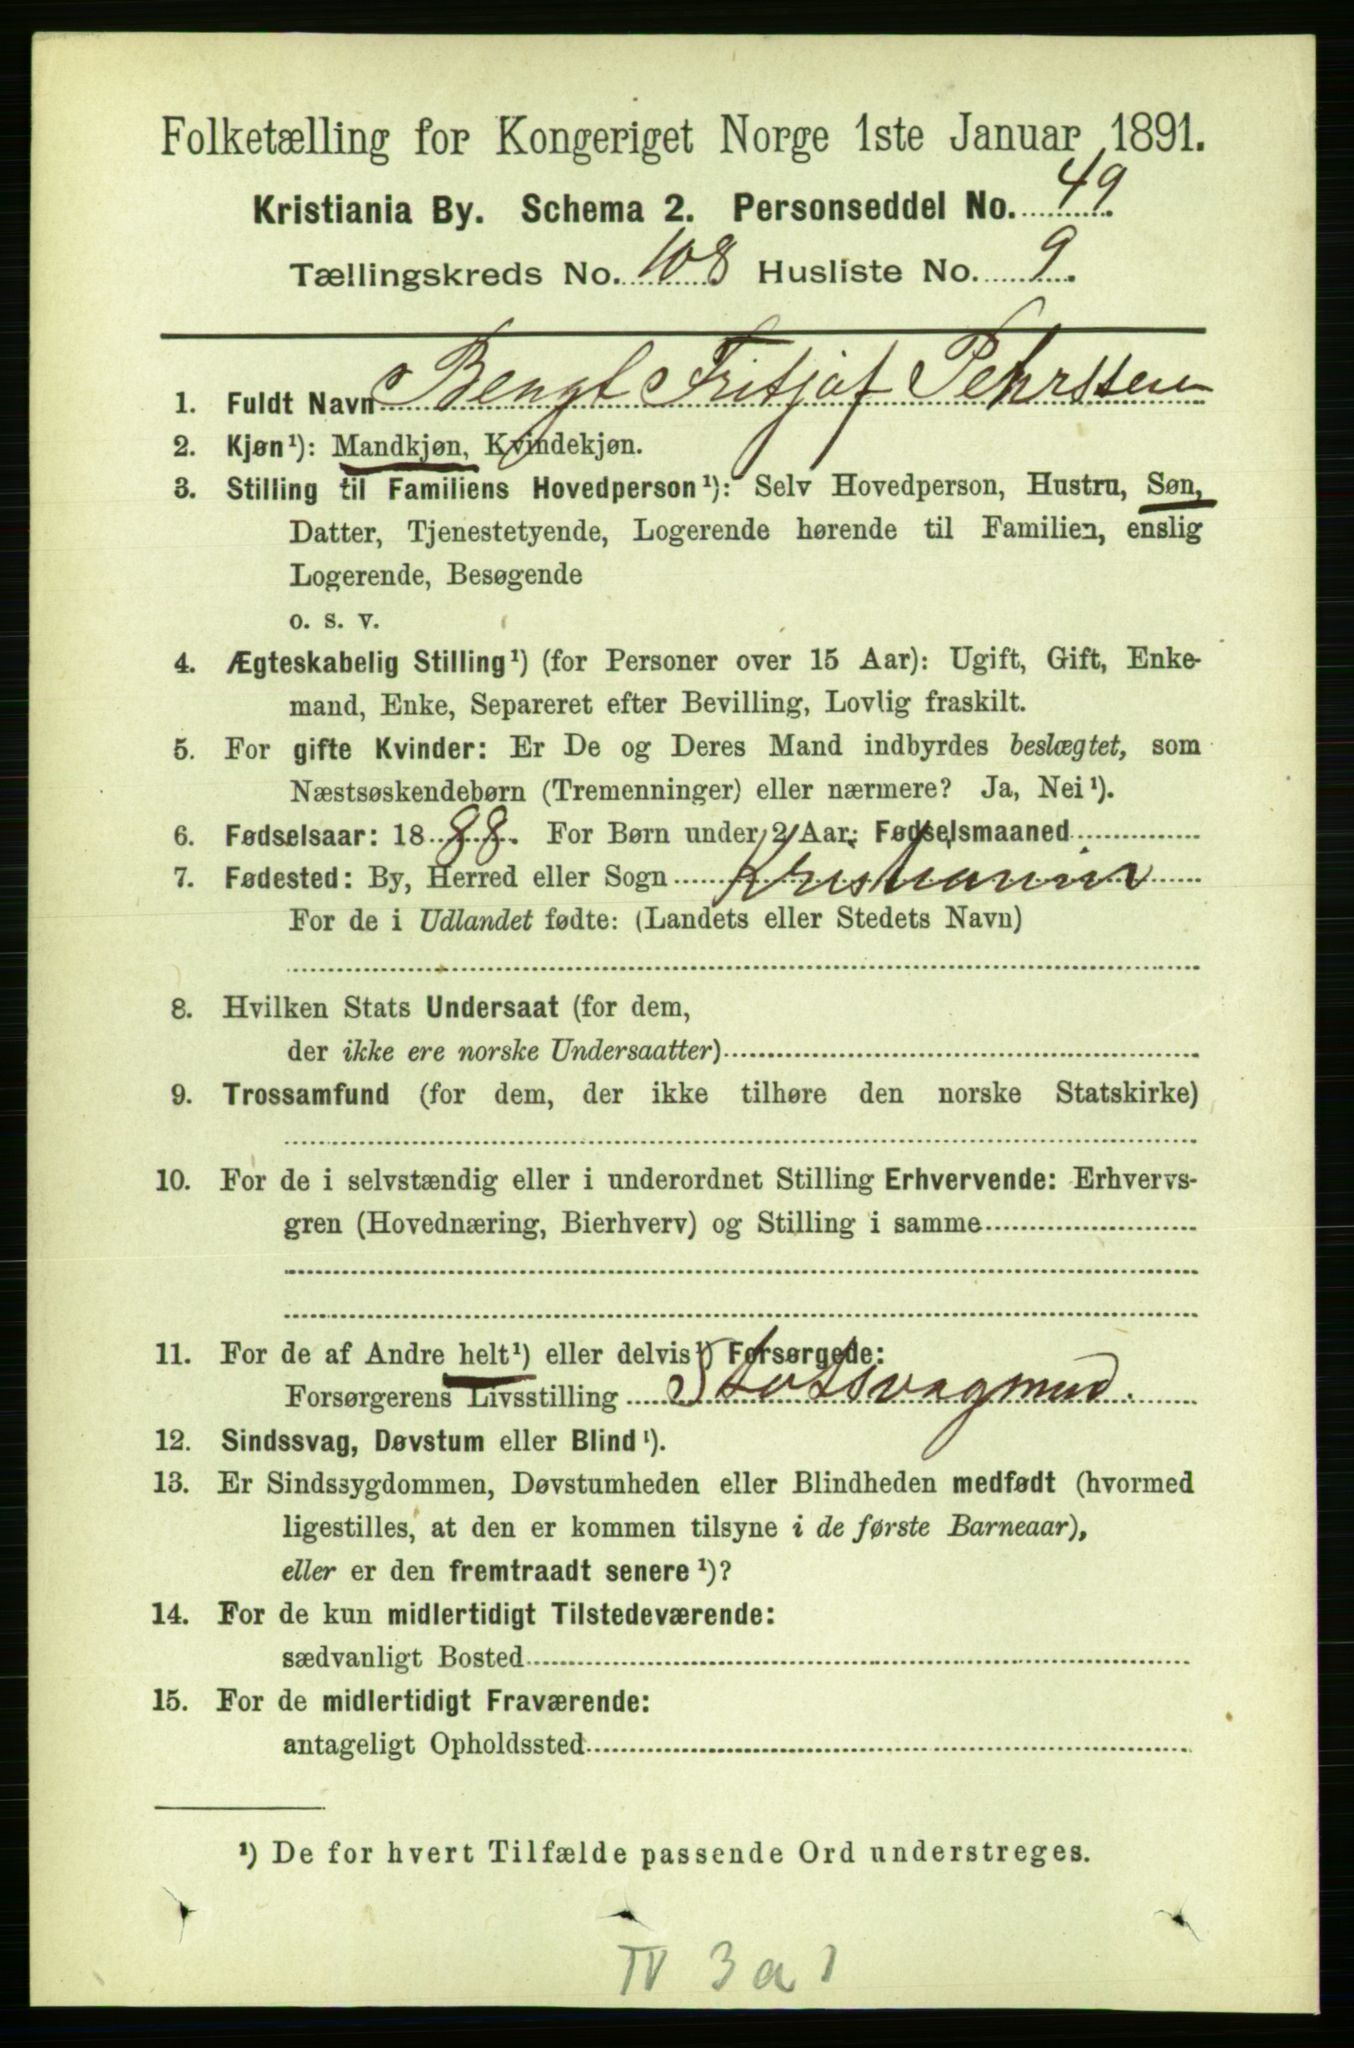 Folketælling for Kongeriget Norge 1ste Januar 1891.
Kristiania By. Schema 2. Personseddel No. 49
Tællingskreds No. 108 Husliste No. 9.
1. Fuldt Navn Bengt Fritjof Pehrssen
2. Kjøn¹): Mandkjøn, Kvindekjøn.
3. Stilling til Familiens Hovedperson¹): Selv Hovedperson, Hustru, Søn,
Datter, Tjenestetyende, Logerende hørende til Familien, enslig
Logerende, Besøgende
o. s. v.
4. Ægteskabelig Stilling¹) (for Personer over 15 Aar): Ugift, Gift, Enke-
mand, Enke, Separeret efter Bevilling, Lovlig fraskilt.
5. For gifte Kvinder: Er De og Deres Mand indbyrdes beslægtet, som
Næstsøskendebørn (Tremenninger) eller nærmere? Ja, Nei¹).
6. Fødselsaar: 1888. For Børn under 2 Aar: Fødselsmaaned
7. Fødested: By, Herred eller Sogn Kristiania
For de i Udlandet fødte: (Landets eller Stedets Navn)
8. Hvilken Stats Undersaat (for dem,
der ikke ere norske Undersaatter)
9. Trossamfund (for dem, der ikke tilhøre den norske Statskirke)
10. For de i selvstændig eller i underordnet Stilling Erhvervende: Erhvervs-
gren (Hovednæring, Bierhverv) og Stilling i samme
11. For de af Andre helt¹) eller delvis¹) Forsørgede:
Forsørgerens Livsstilling
12. Sindssvag, Døvstum eller Blind¹).
13. Er Sindssygdommen, Døvstumheden eller Blindheden medfødt (hvormed
ligestilles, at den er kommen tilsyne i de første Barneaar),
eller er den fremtraadt senere¹)?
14. For de kun midlertidigt Tilstedeværende:
sædvanligt Bosted
15. For de midlertidigt Fraværende:
antageligt Opholdssted
¹) De for hvert Tilfælde passende Ord understreges.
IV 3 a 1